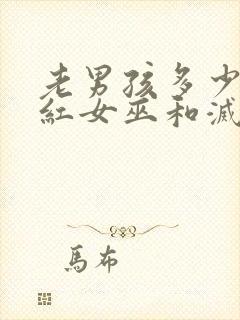 老男孩多少
紅女巫和滅
馬布